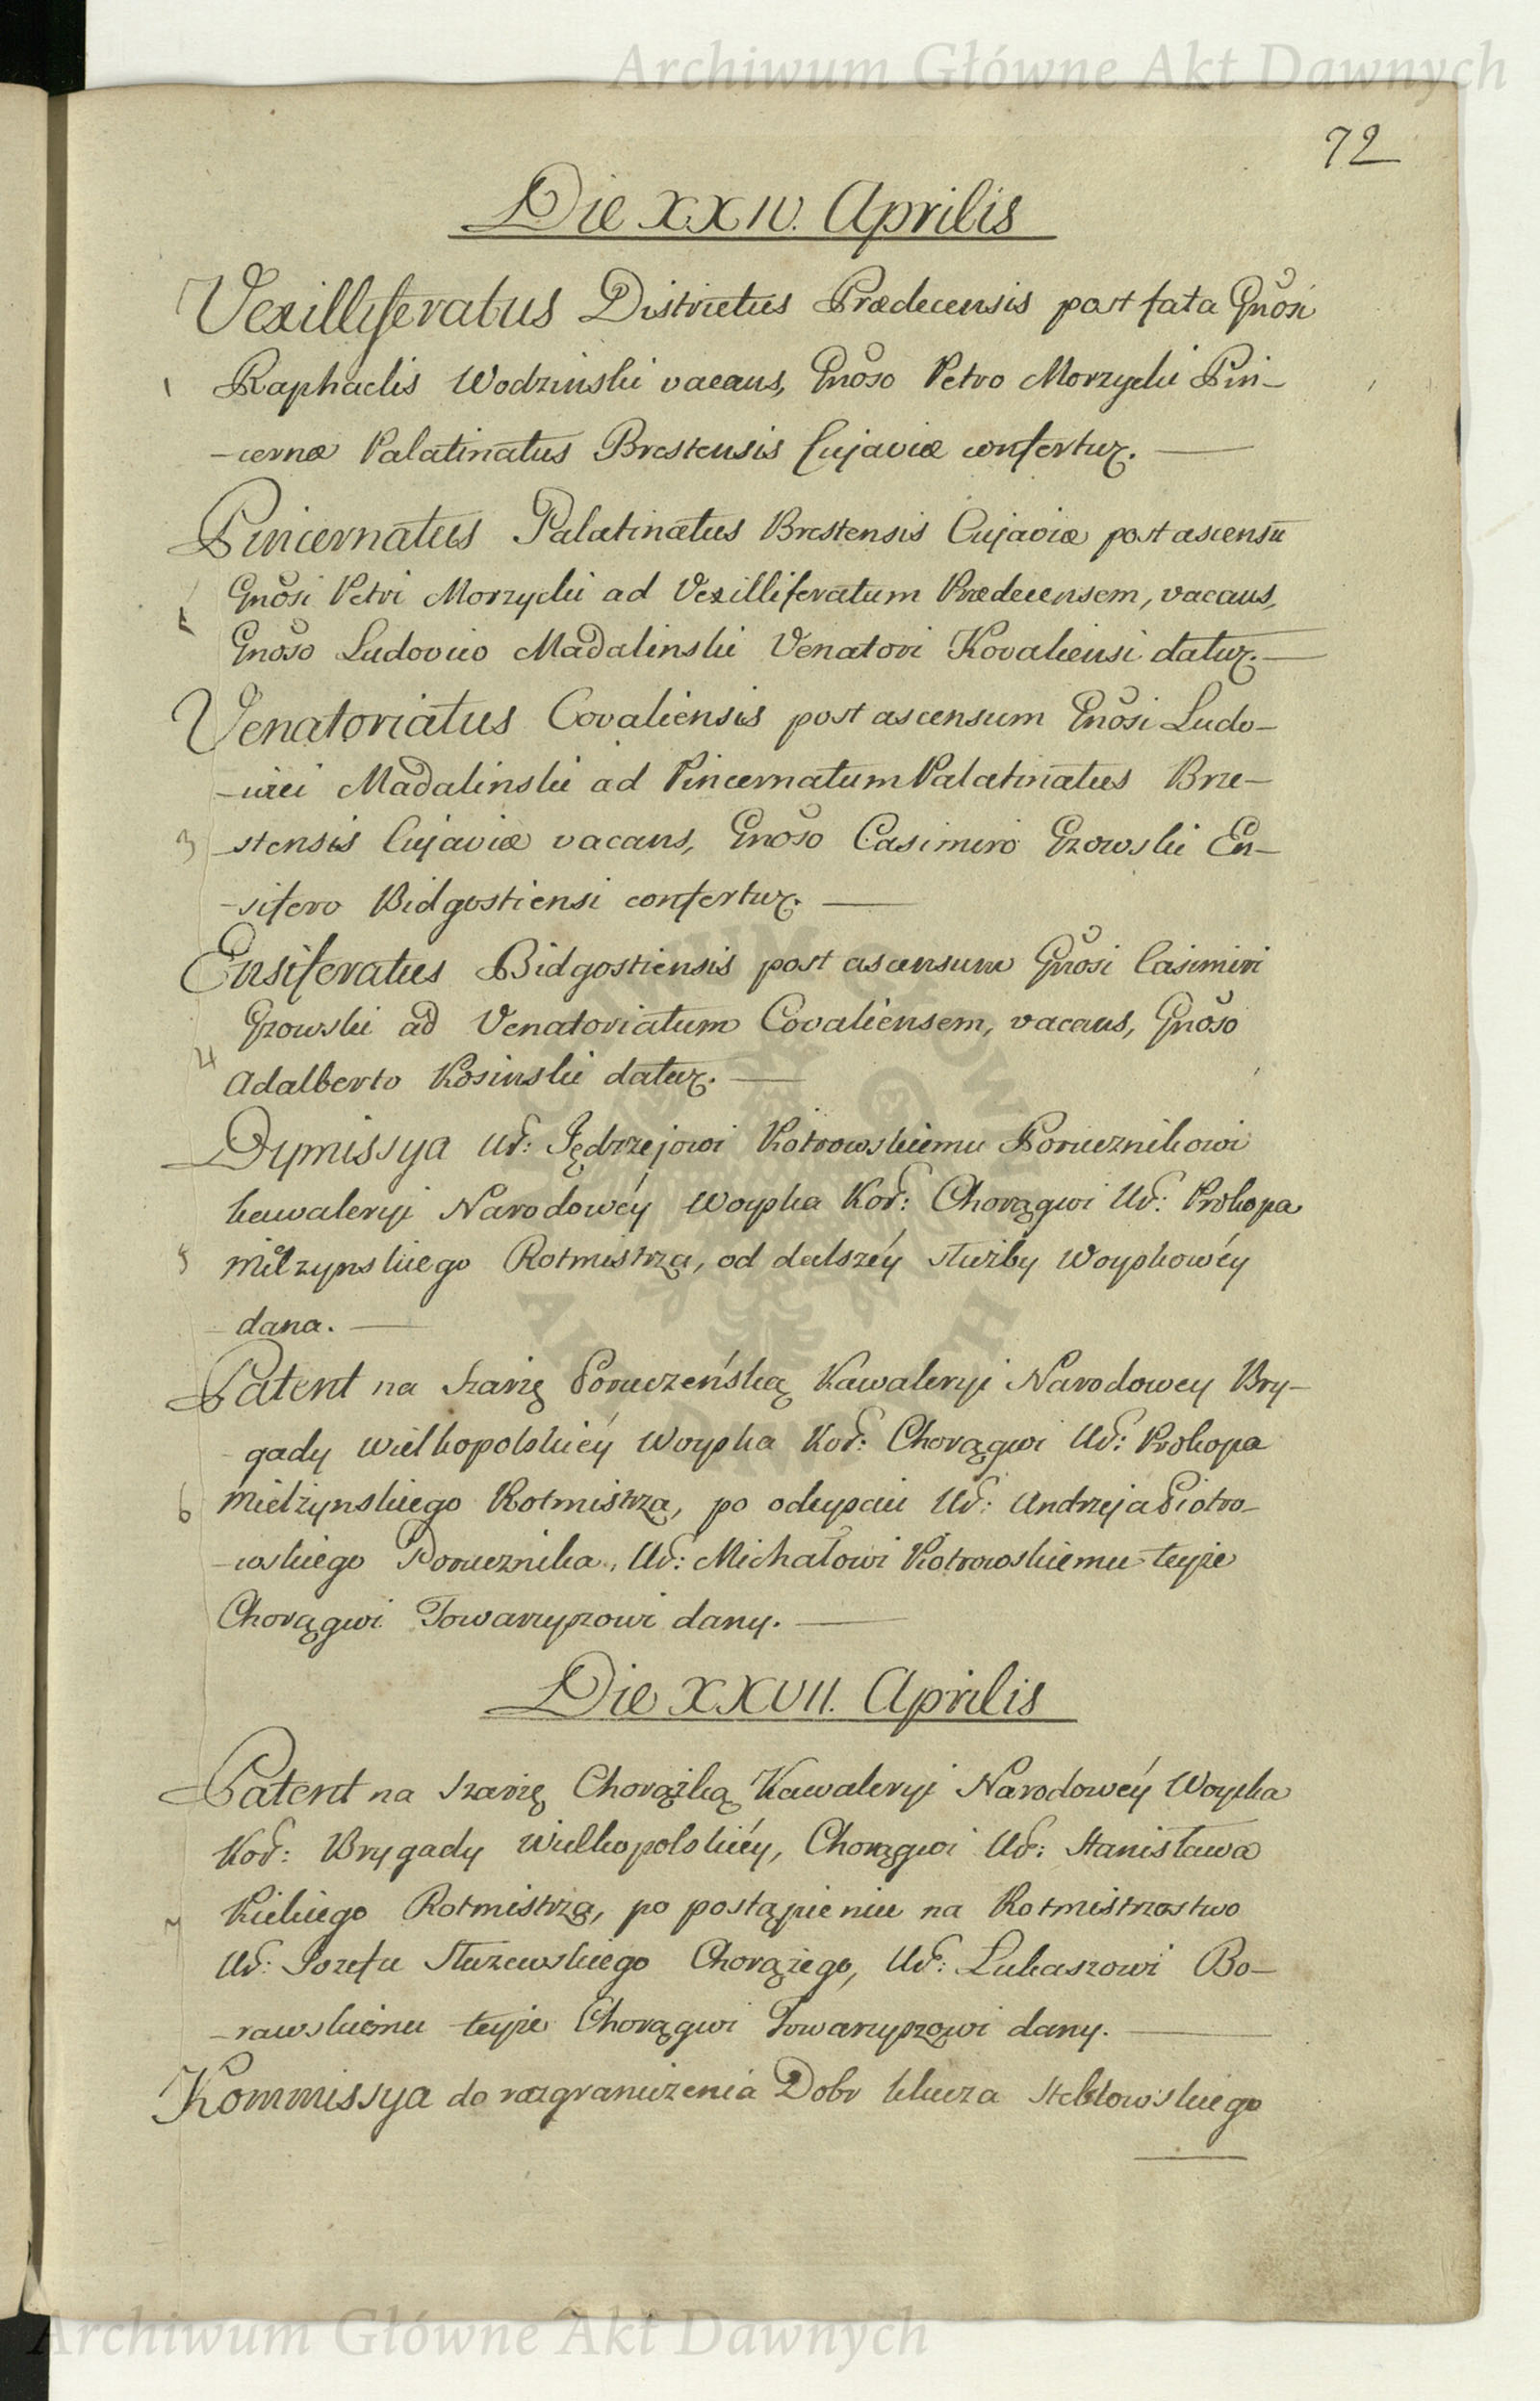 Archiwum Główne Akt Dawnych
72
Die XXIV. Aprilis
Vexilliferatus Districtus Prædecensis post fata Gnosi
1 Raphaelis Wodzinski vacans, Gnoso Petro Morzycki Pin-
-cernæ Palatinatus Brestensis Cujaviæ confertur.
Pincernatus Palatinatus Brestensis Cujaviæ post ascensū
Gnosi Petri Morzycki ad Vexilliferatum Prædecensem, vacans,
Gnoso Ludovico Madalinski Venatori Kovaliensi datur.
Venatoriatus Covaliensis post ascensum Gnosi Ludo-
-vici Madalinski ad Pincernatum Palatinatus Brze-
3 -stensis Cujaviæ vacans, Gnoso Casimiro Gzowski En-
-sifero Bidgostiensi confertur.
Ensiferatus Bidgostiensis post ascensum Gnosi Casimiri
Gzowski ad Venatoriatum Covaliensem, vacans, Gnoso
4 Adalberto Kosinski datur.
Dymissya Ur: Jędrzejowi Piotrowskiemu Porucznikowi
kawaleryi Narodowéy Woyska Kor: Chorągwi Ur: Prokopa
5 Mielzynskiego Rotmistrza, od dalszéy służby Woyskowéy
dana.
Patent na szarżę Poruczeńską Kawaleryi Narodowey Bry-
gady Wielkopolskiéy Woyska Kor: Chorągwi Ur: Prokopa
6 Mielżynskiego Rotmistrza, po odeyściu Ur: Andrzeja Piotro-
-wskiego Porucznika, Ur: Michałowi Piotrowskiemu teyże
Chorągwi Towarzyszowi dany.
Die XXVII. Aprilis
Patent na szarżę Chorążką Kawaleryi Narodowéy Woyska
Kor: Brygady Wielkopolskiéy, Chorągwi Ur: Stanisława
7 Kickiego Rotmistrza, po postąpieniu na Rotmistrzostwo
Ur: Jozefa Służewskiego Chorążego, Ur: Łukaszowi Bo-
-rawskiemu teyże Chorągwi Towarzyszowi dany.
Kommissya do rozgraniczenia Dobr klucza Steblowskiego
Archiwum Główne Akt Dawnych